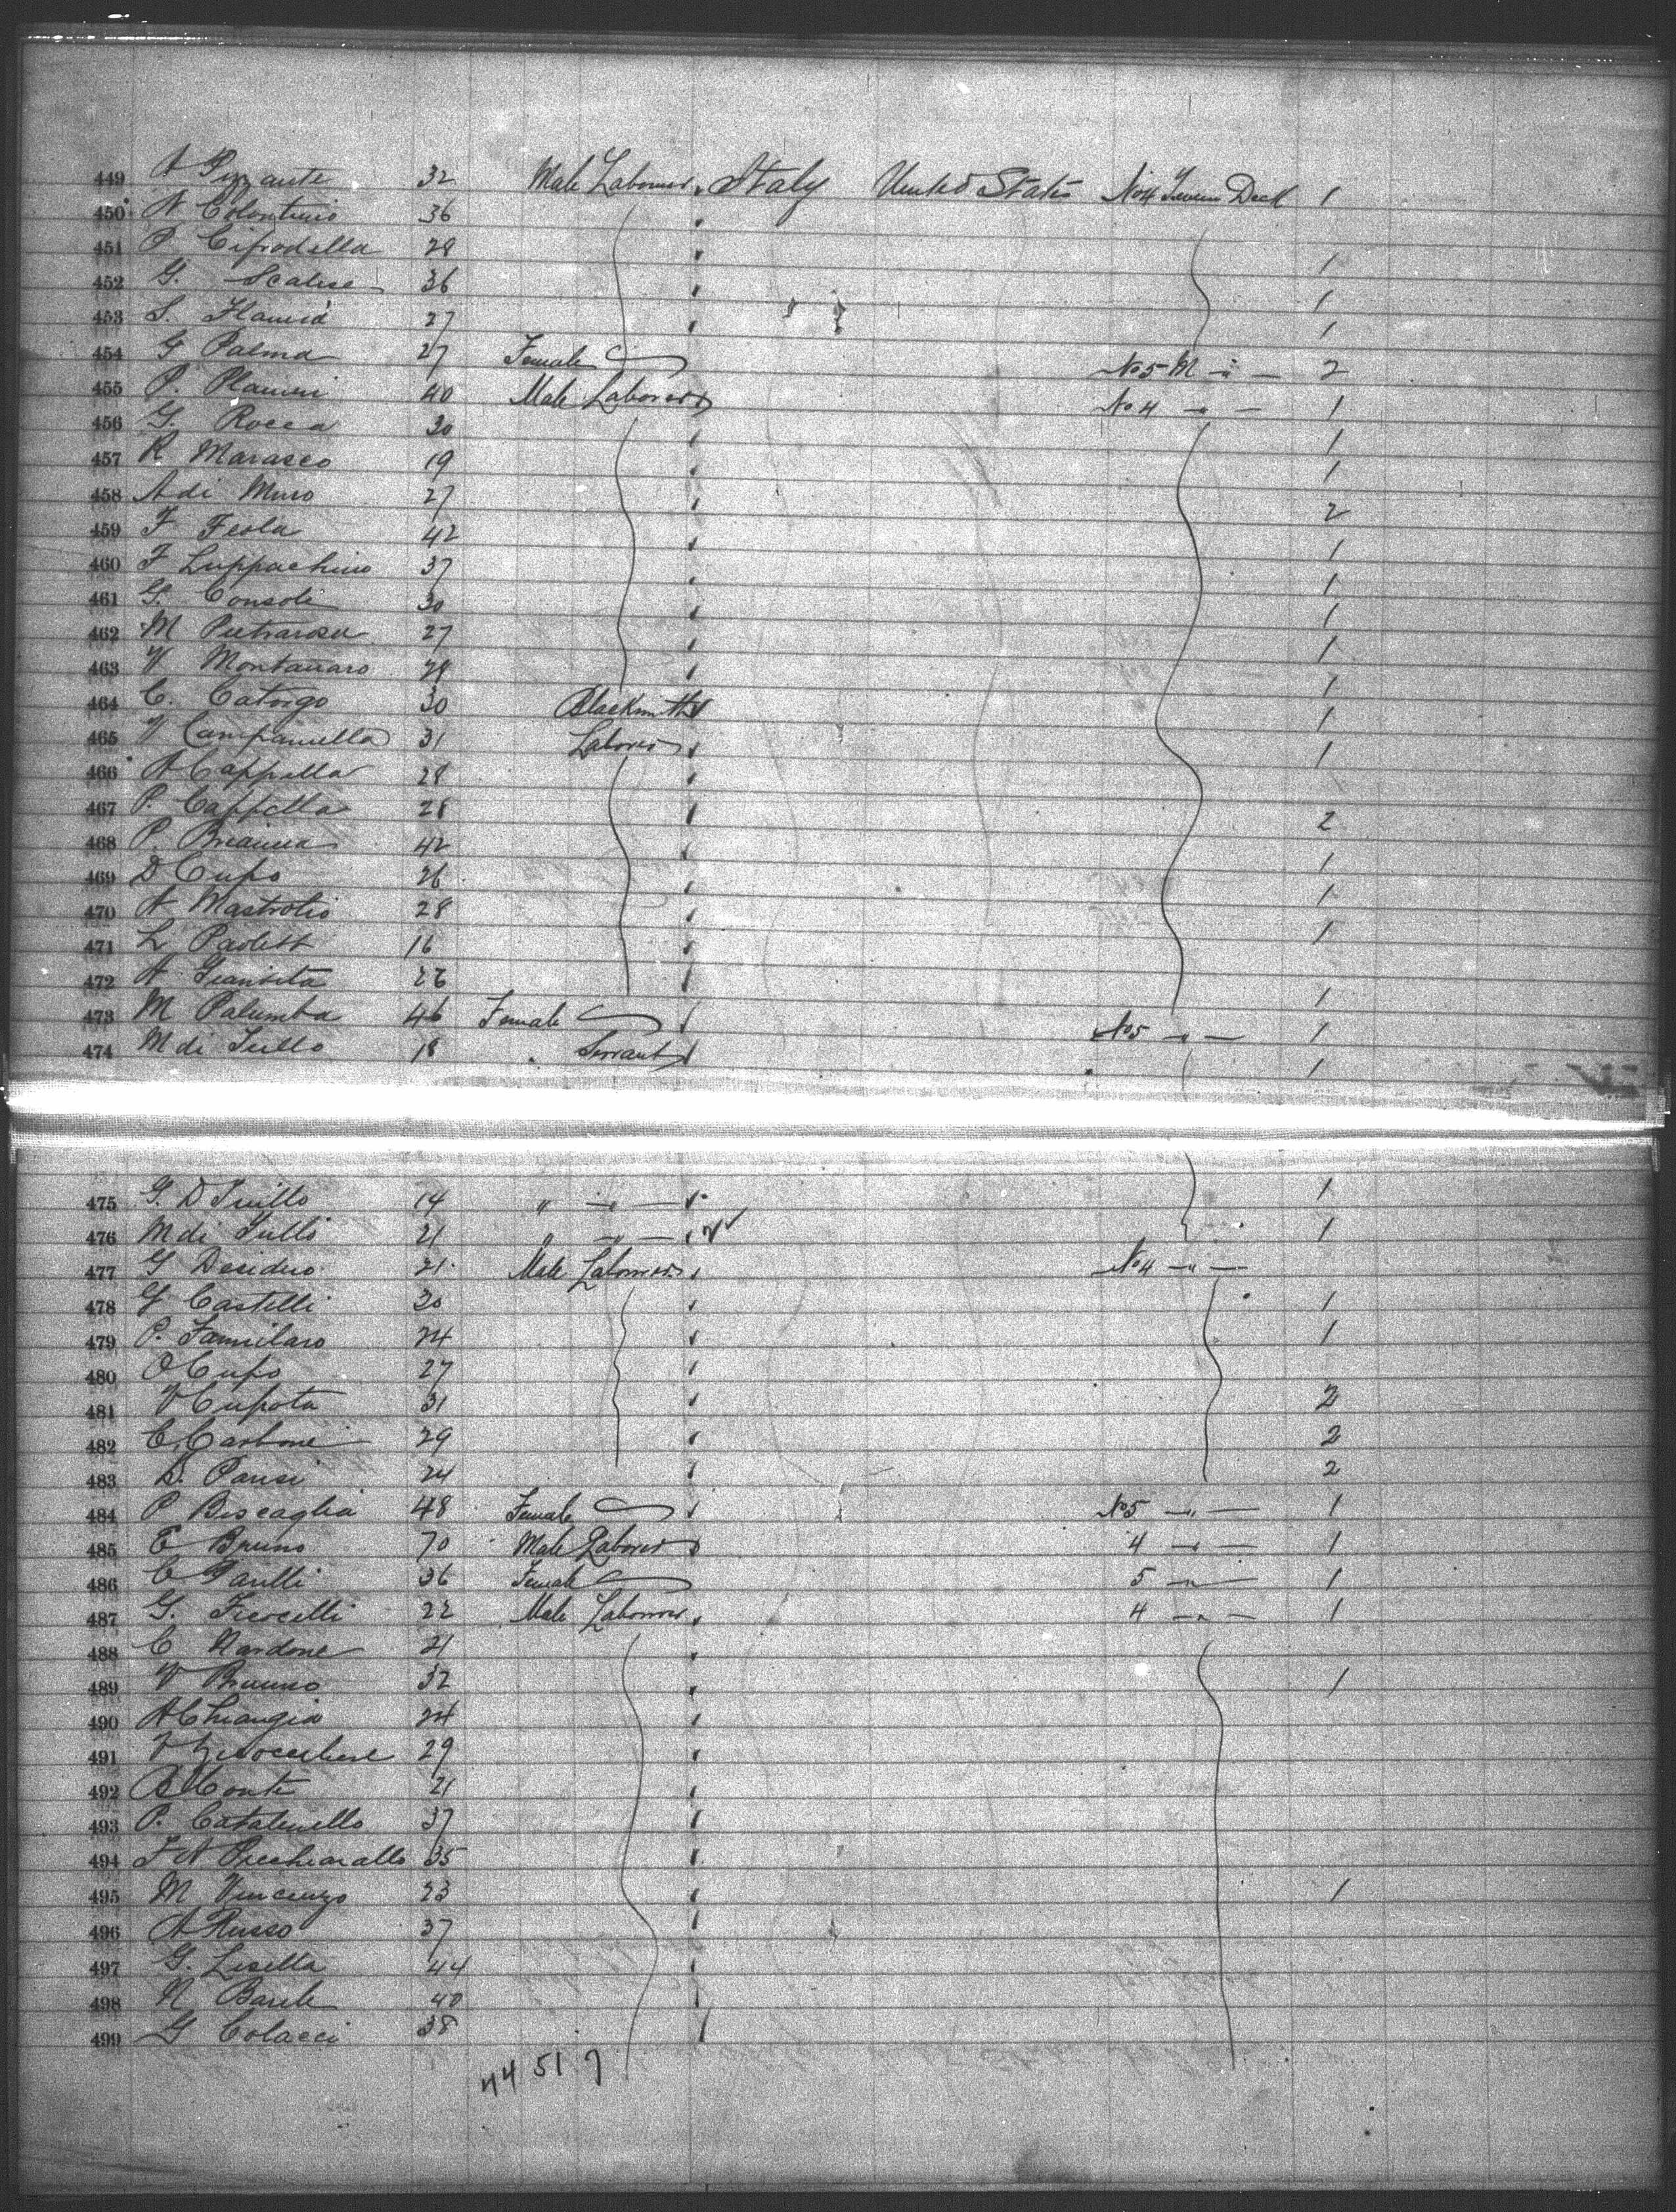 449 A Pizzante 32 Male Laborer Italy United States No 4 Tween Deck 1
450 N Colontuno 36
451 P. Cifrodella 28 1
452 G. Scalise 36 1
453 S. 27 1
454 G Palma 27 Female No 5 M " — 2
455 P. 40 Male Laborer No 4 — " — 1
456 G. Rocca 30 1
457 R Marasco 19 1
458 A di Muro 27 2
459 F Feola 42 1
460 F Luppachino 37 1
461 G. Consoli 30 1
462 M Pietrarosa 27 1
463 V Montanaro 28 1
464 C. Catorgo 30 Blacksmith 1
465 V Campanella 31 Laborer 1
466 A Cappella 28
467 P. Cappella 28 2
468 P. 42 1
469 D Cupo 26 1
470 A Mastrolio 28 1
471 L Paolett 16
472 A 26 1
473 M Palumba 46 Female No 5 — " — 1
474 M di Tullo 18 " Servant 1
475 G. D Tuillo 14 " — " — 1
476 M di Tullo 21 " — " — 1
477 G Desiduo 21 Male Laborer No 4 — " —
478 G Castelli 30 1
479 P. Familaro 24 1
480 O Cupo 27
481 V Cupota 31 2
482 C. Carbone 29 2
483 D. Pansi 24 2
484 P Biscaglia 48 Female No 5 — " — 1
485 E Bruno 70 Male Laborer 4 — " — 1
486 C 36 Female 5 — " — 1
487 G. 22 Male Laborer 4 — " — 1
488 C Nardone 21
489 V Brunno 32 1
490 A Chiangia 24
491 V 29
492 B Conte 21
493 P. Catalenello 37
494 F N Pecchiarallo 35
495 M Vincenzo 23 1
496 A Russo 37
497 G. Lisella 44
498 N Barile 40
499 G Colacci 38
44 51.7